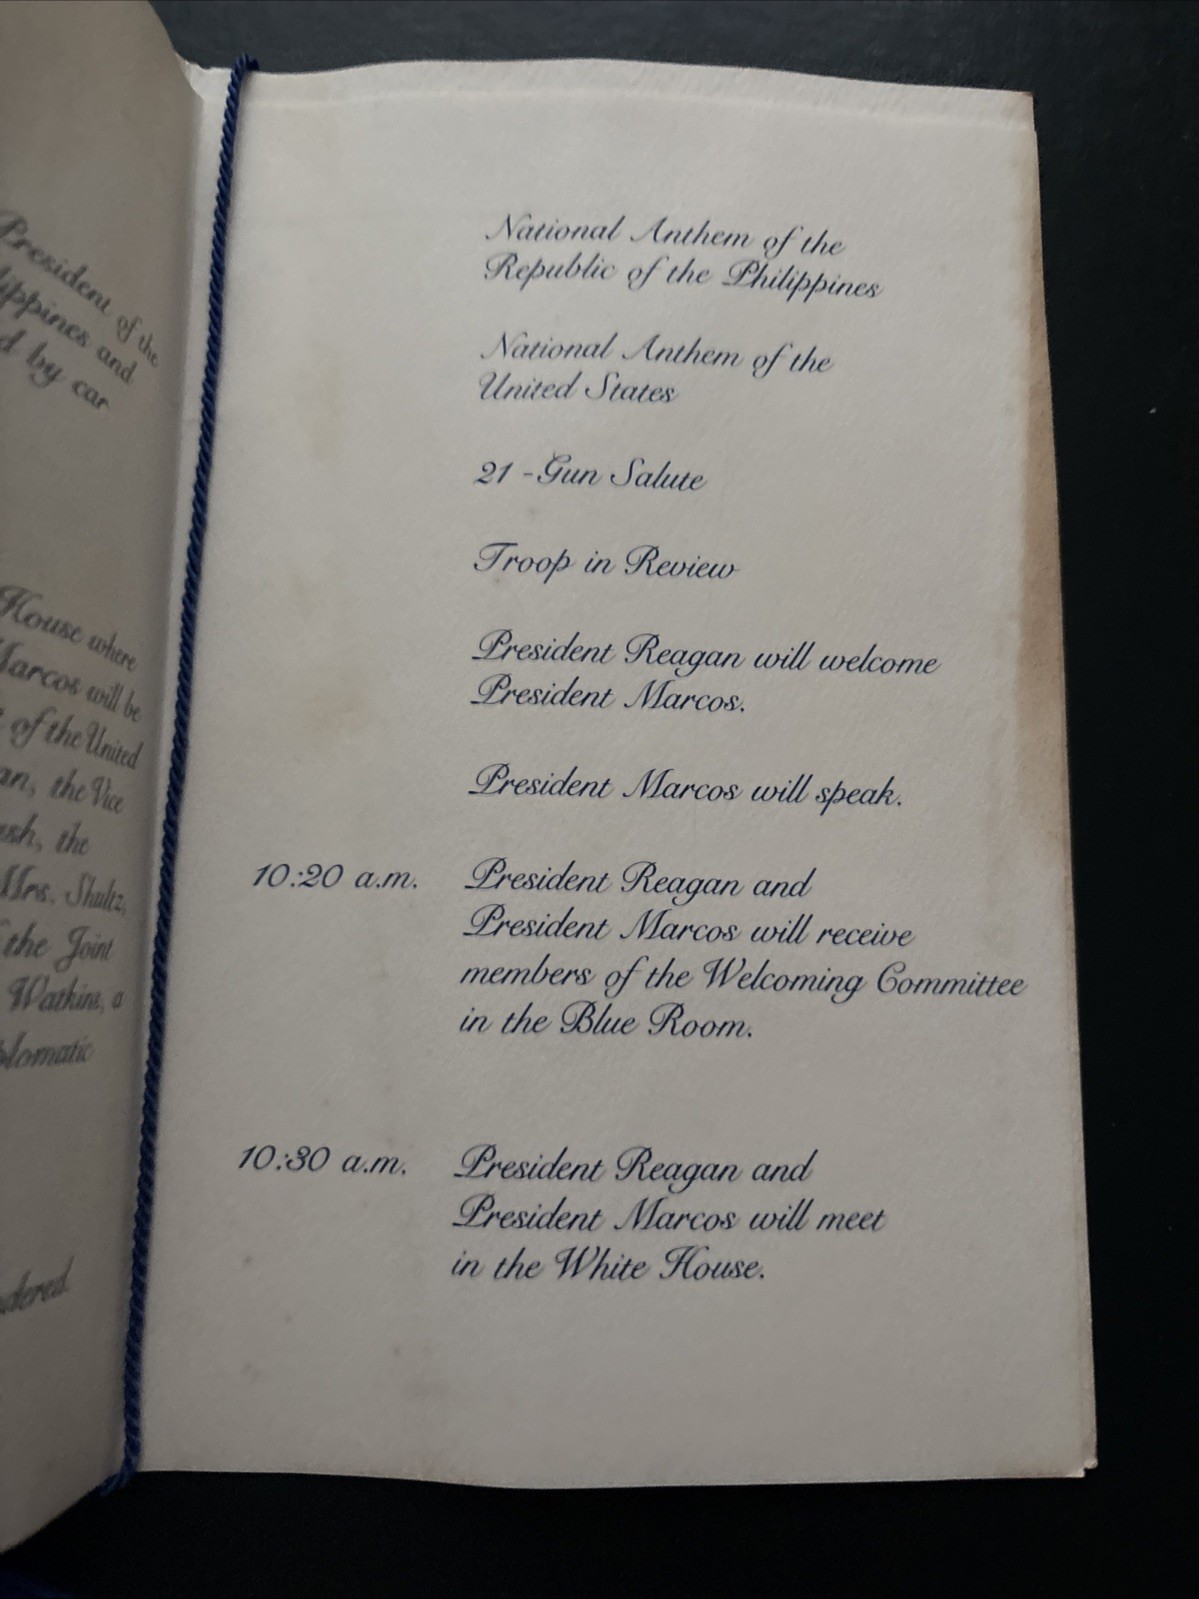 President of the
ippines and
d by car
House where
Marcos will be
of the United
an, the Vice
ush, the
Mrs. Shultz,
the Joint
Watkins, a
plomatic
dered.
National Anthem of the
Republic of the Philippines
National Anthem of the
United States
21 - Gun Salute
Troop in Review
President Reagan will welcome
President Marcos.
President Marcos will speak.
10:20 a.m. President Reagan and
President Marcos will receive
members of the Welcoming Committee
in the Blue Room.
10:30 a.m. President Reagan and
President Marcos will meet
in the White House.